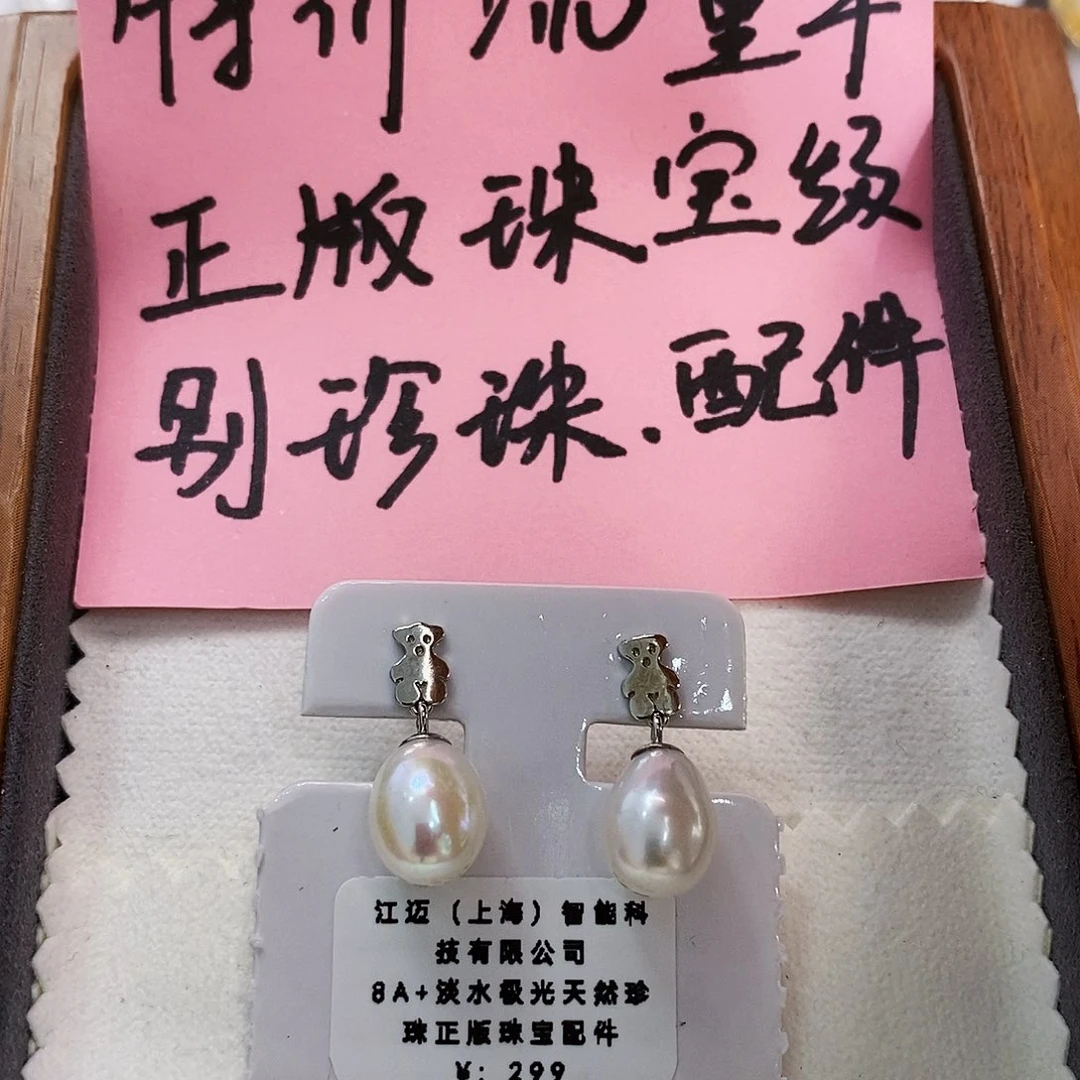 特价流量车
正版珠宝级
别珍珠.配件
江迈（上海）智能科
技有限公司
8A+淡水极光天然珍
珠正版珠宝配件
¥: 299